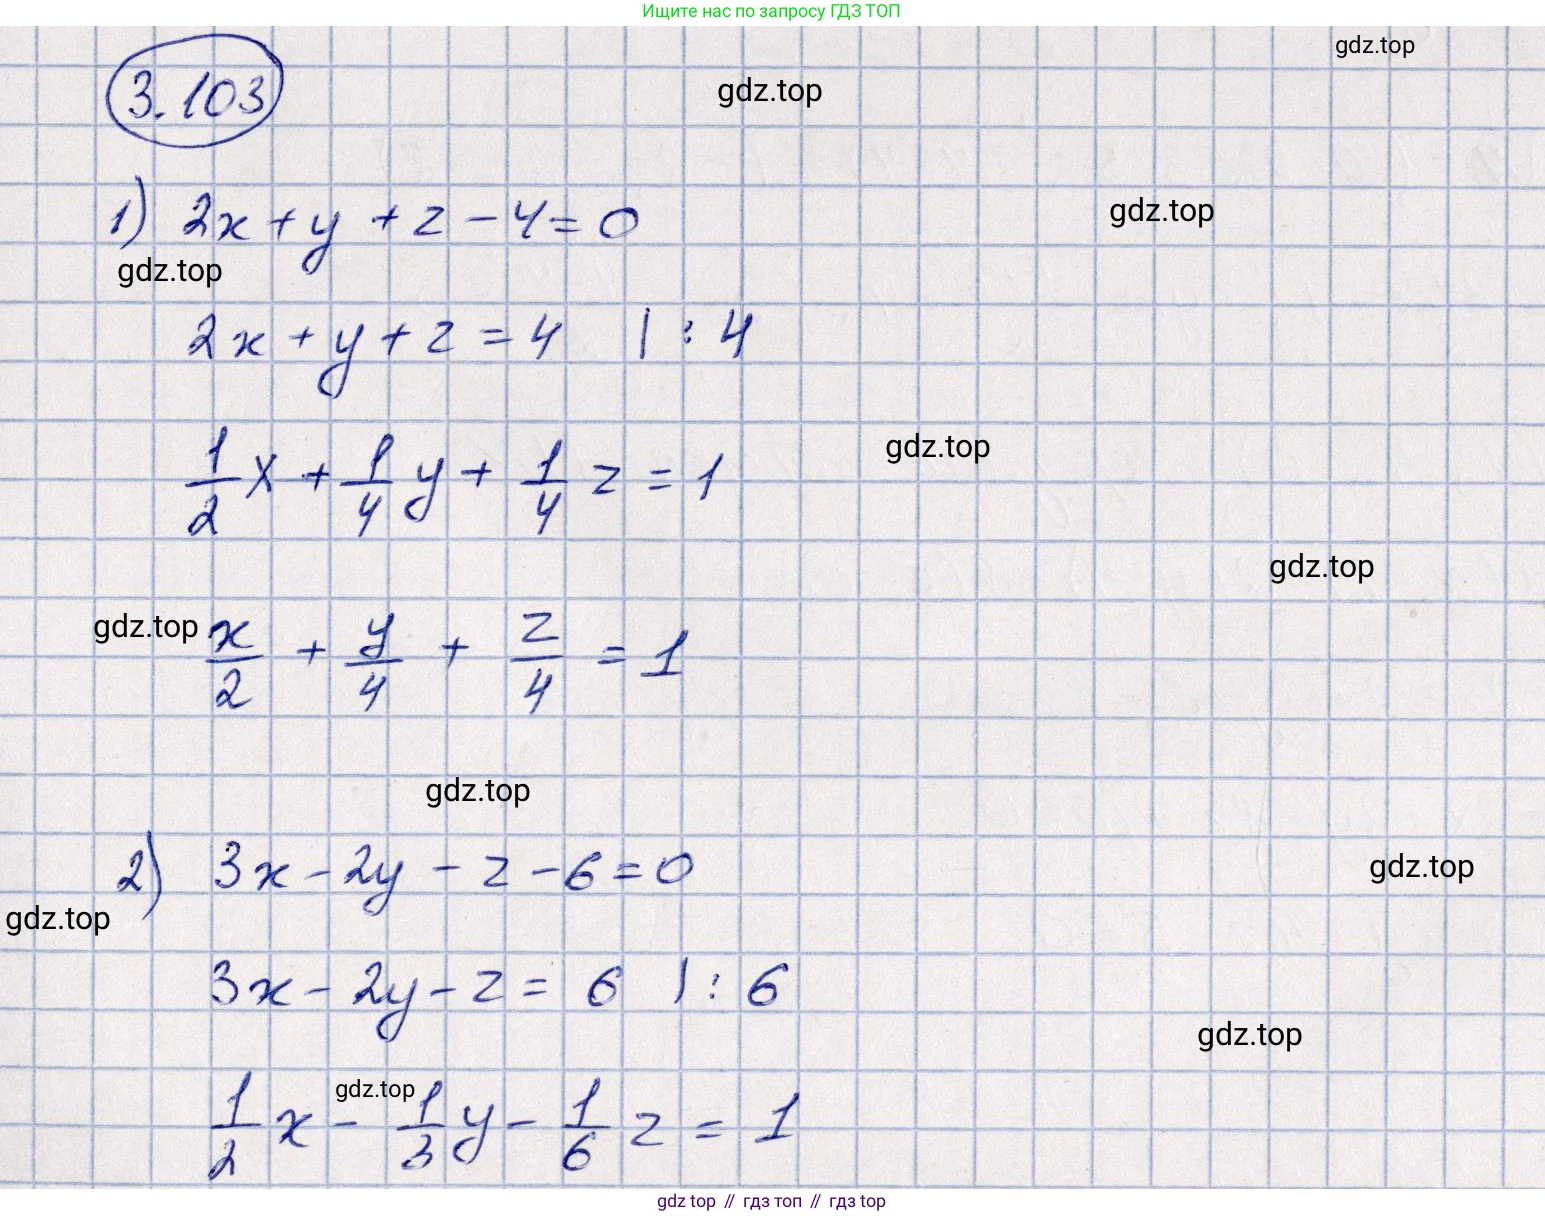 Ищите нас по запросу ГДЗ ТОП
gdz.top
3.103
gdz.top
1) 2x + y + z - 4 = 0
gdz.top
gdz.top
2x + y + z = 4 | : 4
1/2 x + 1/4 y + 1/4 z = 1
gdz.top
gdz.top
gdz.top
x/2 + y/4 + z/4 = 1
gdz.top
2) 3x - 2y - z - 6 = 0
gdz.top
gdz.top
3x - 2y - z = 6 | : 6
gdz.top
gdz.top
1/2 x - 1/3 y - 1/6 z = 1
gdz top // гдз топ // гдз top